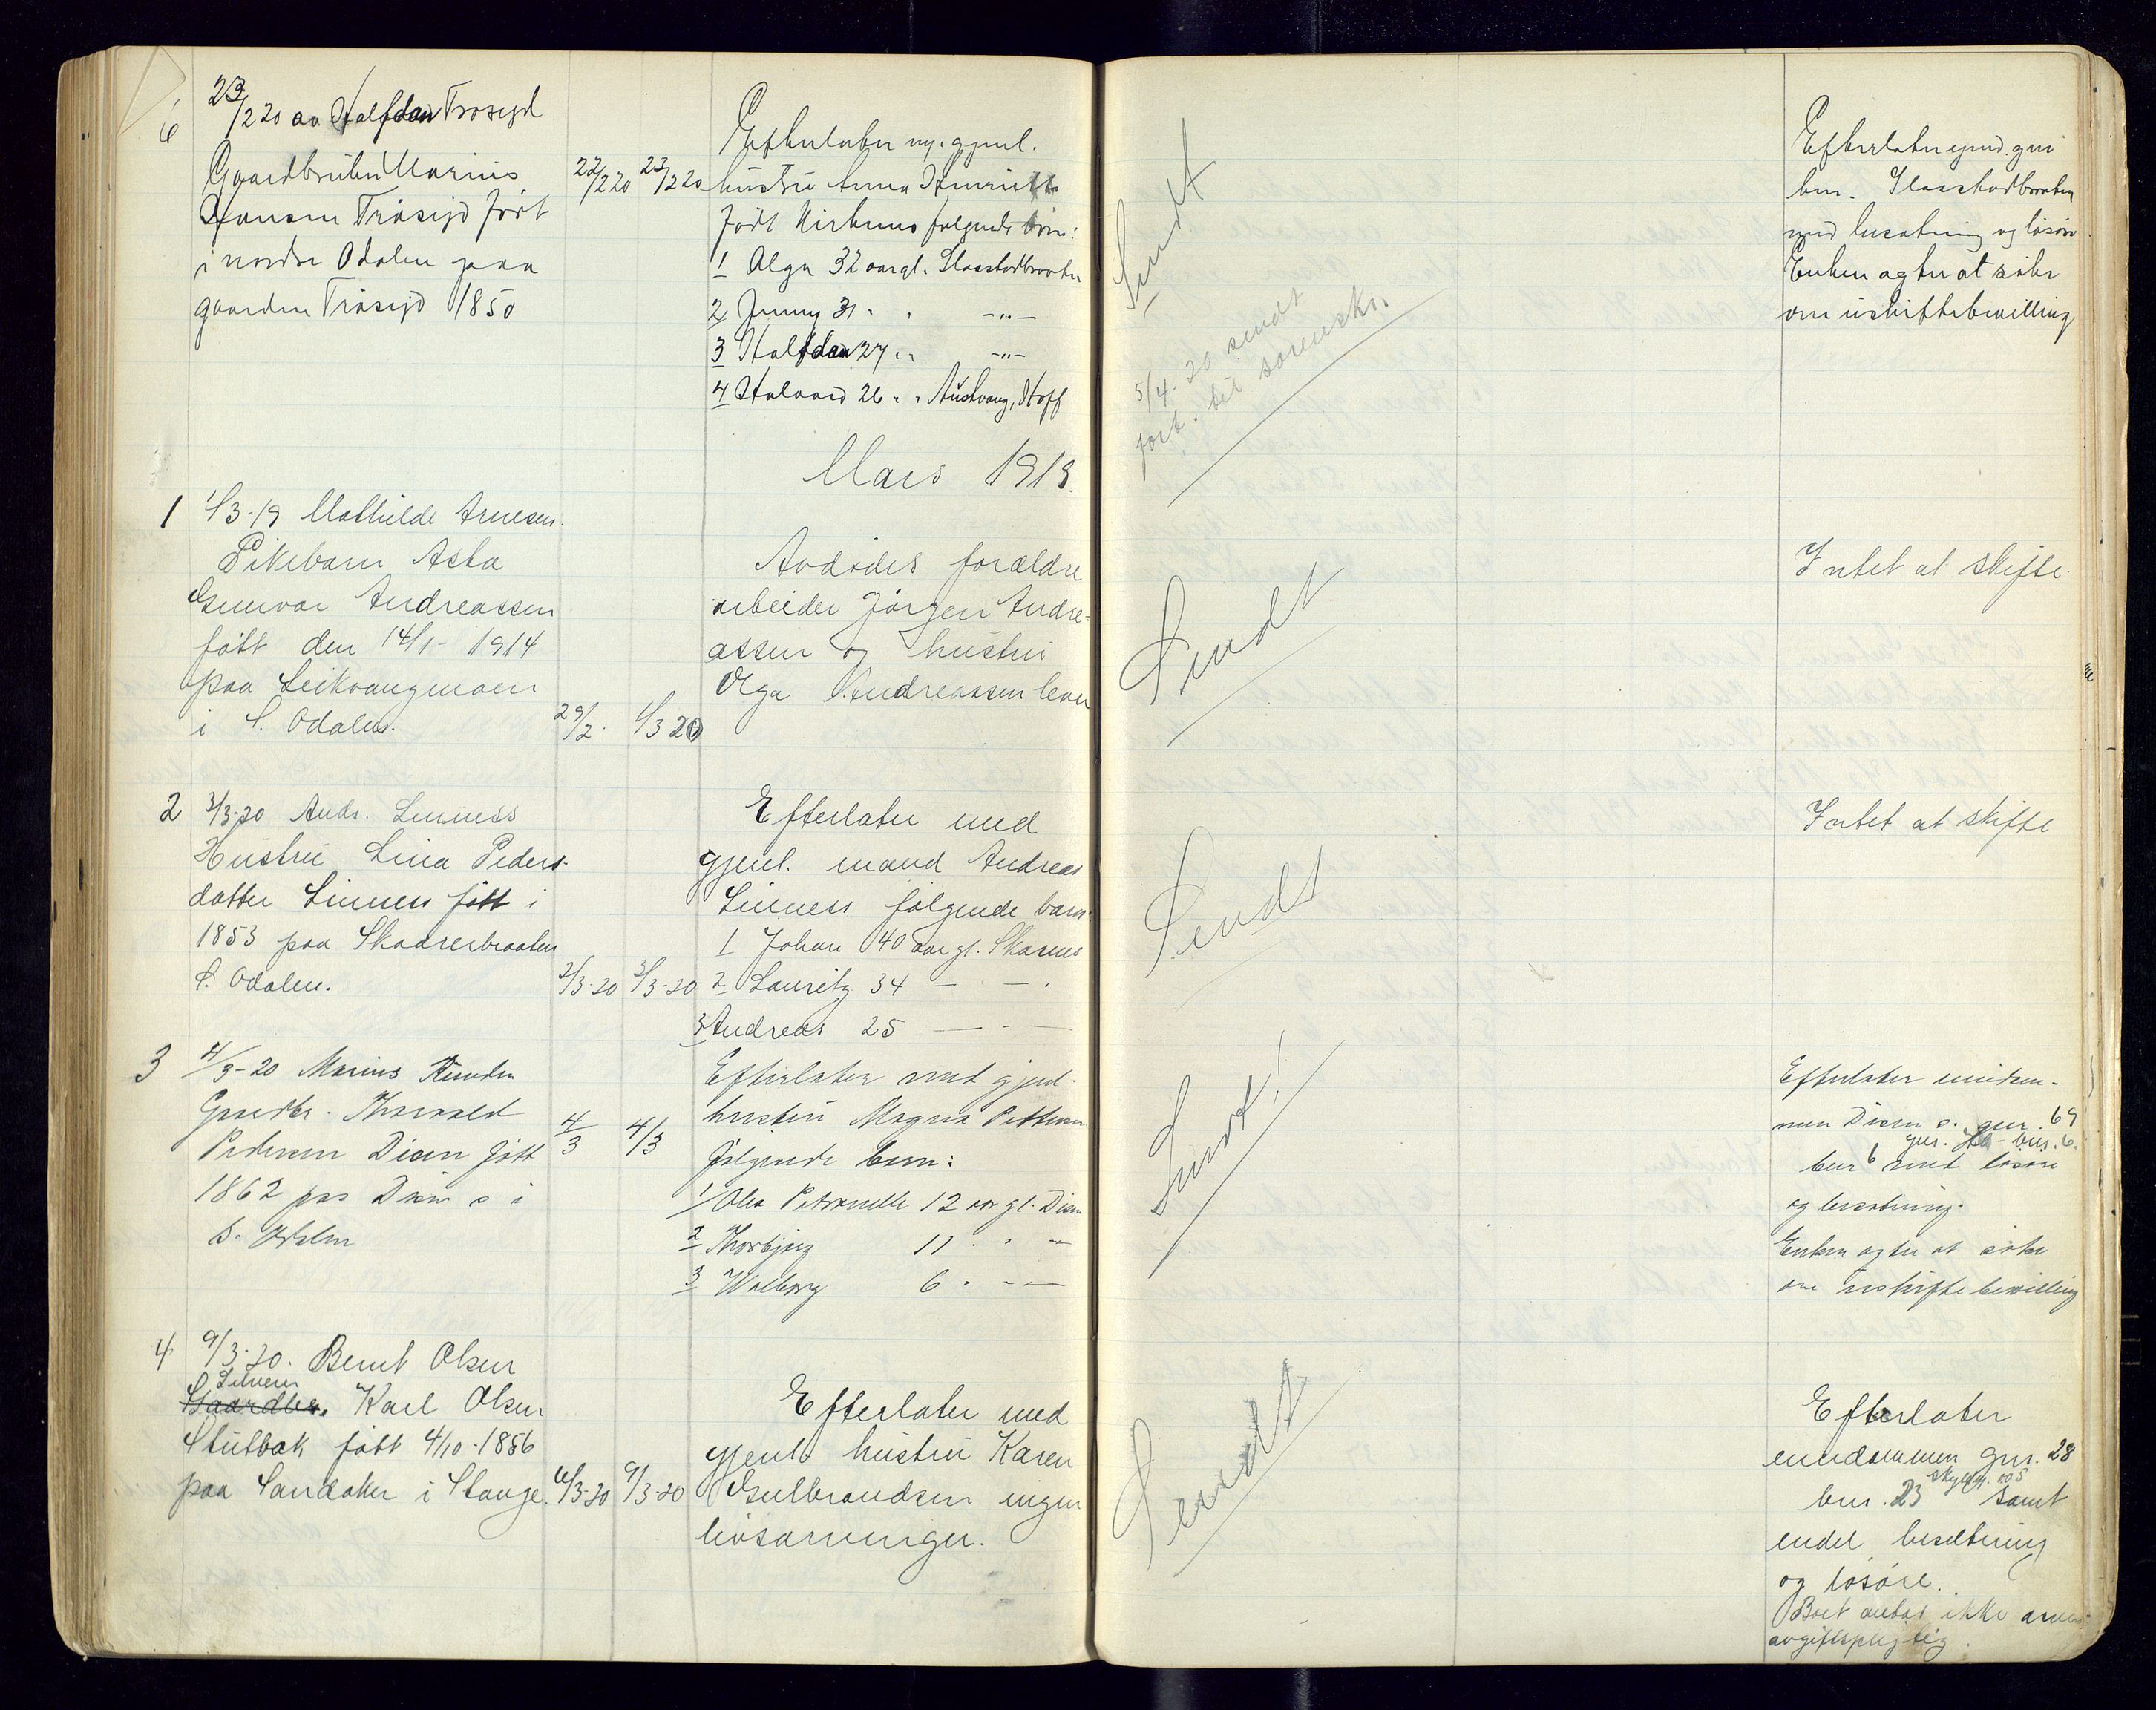 6
23/2 20 av Halfdan Trøseyd
Gaardbruker Marius
Hansen Trøseyd født
i nordre Odalen paa
gaarden Trøseyd 1850
22/2 20 23/2 20
Efterlater gjenl.
hustru Anna Henriette
født følgende børn:
1 Olga 32 aar gl. Slaastadbraaten
2 Jenny 31 " " -"-
3 Halfdan 27 " " -"-
4 Halvard 26 " " Austvang, Hoff
Sendt
5/4-20 sendt
fort. til sorenskr.
Efterlater eiend. gnr
bnr. Slaastadbraaten
med besætning og løsøre
Enken agter at søke
om uskiftebevilling
Mars 1919.
1
1/3-19 Mathilde Arnesen.
Pikebarn Asta
Gunvor Andreassen
født den 14/1-1914
paa Leikvangmoen
i S. Odalen.
29/2. 1/3 20
Avdødes forældre
arbeider Jørgen Andre-
assen og hustru
Olga Andreassen lever
Sendt
Intet at skifte.
2
3/3-20 Andr. Linness
Hustru Lina Peders-
datter Linness født i
1853 paa Skaarerbraaten
S. Odalen.
2/3-20 3/3-20
Efterlater med
gjenl. mand Andreas
Linness følgende barn:
1 Johan 40 aar gl. Skarnes
2 Lauritz 34 — — .
3 Andreas 25 — - —
Sendt
Intet at skifte
3
4/3-20 Marius
Gaardbr. Thorvald
Pedersen Disen født
1862 paa Disen s i
S. Odalen
4/3 4/3
Efterlater med gjenl.
hustru Magna Pettersen
følgende barn:
1 Olea Petronelle 12 aar gl. Disen
2 Thorbjørg 11 " " —
3 Walborg 6 " - —
Sendt!
Efterlater eiendom-
men Disen s. gnr. 69
gnr. bnr. 6.
bnr 6 med løsøre
og besætning.
Enken agter at søke
om uskiftebevilling
4
9/3-20. Bernt Olsen
Gaardbr. Karl Olsen
Stutbak født 4/10-1856
paa Sandaker i Stange.
6/3-20 9/3-20
Efterlater med
gjenl. hustru Karen
Gulbrandsen ingen
livsarvinger.
Sendt
Efterlater
eiendommen gnr. 28
bnr. 23 samt
endel besætning
og løsøre.
Boet antas ikke arve-
avgiftspligtig.